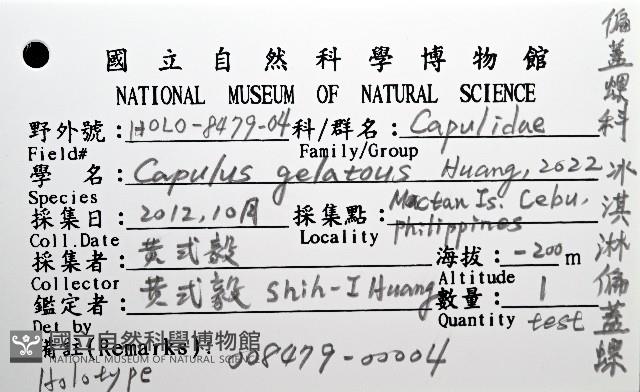 國立自然科學博物館
NATIONAL MUSEUM OF NATURAL SCIENCE
野外號：HOLO-8479-04 科/群名：Capulidae
Field# Family/Group
學 名：Capulus gelatous Huang, 2022
Species
採集日：2012,10月 採集點：Mactan Is. Cebu, philippines
Coll.Date Locality
採集者：黄式毅 海拔：-200m
Collector Altitude
鑑定者：黄式毅 Shih-I Huang 數量：1
Det by Quantity test
備註(Remarks) 008479-00004
Holotype
偏蓋螺科 冰淇淋偏蓋螺
國立自然科學博物館
NATIONAL MUSEUM OF NATURAL SCIENCE